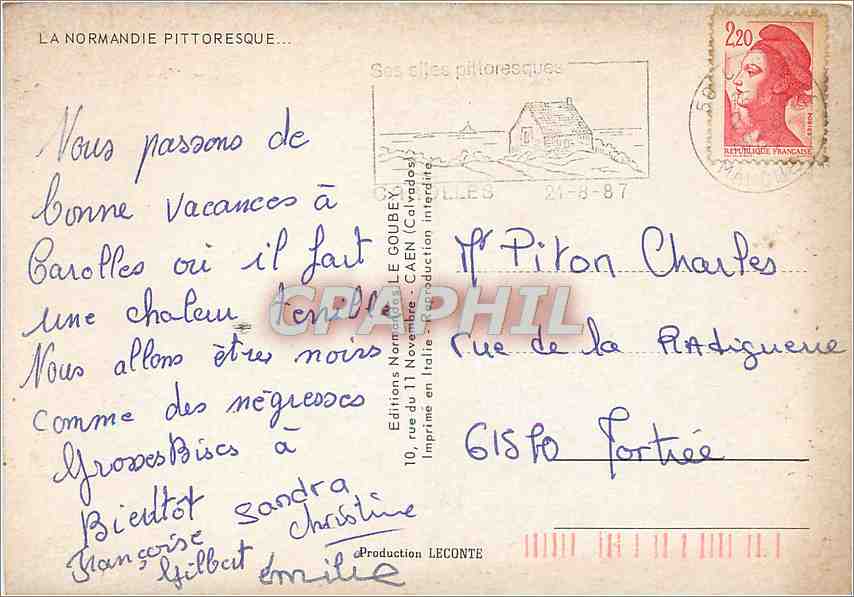 LA NORMANDIE PITTORESQUE...
Ses sites pittoresques
CAROLLES 21-8-87
2,20
REPUBLIQUE FRANÇAISE
Nous passons de
bonne vacances à
Carolles où il fait
une chaleur terrible
Nous allons êtres noirs
comme des négresses
Grosses Bises à
Bientot Sandra
Françoise Christine
Gilbert émilie
Editions Normandes LE GOUBEY
10, rue du 11 Novembre - CAEN (Calvados)
Imprimé en Italie - Reproduction interdite
Mr Piton Charles
rue de la RAdiguerie
61570 Mortrée
Production LECONTE
CPAPHIL